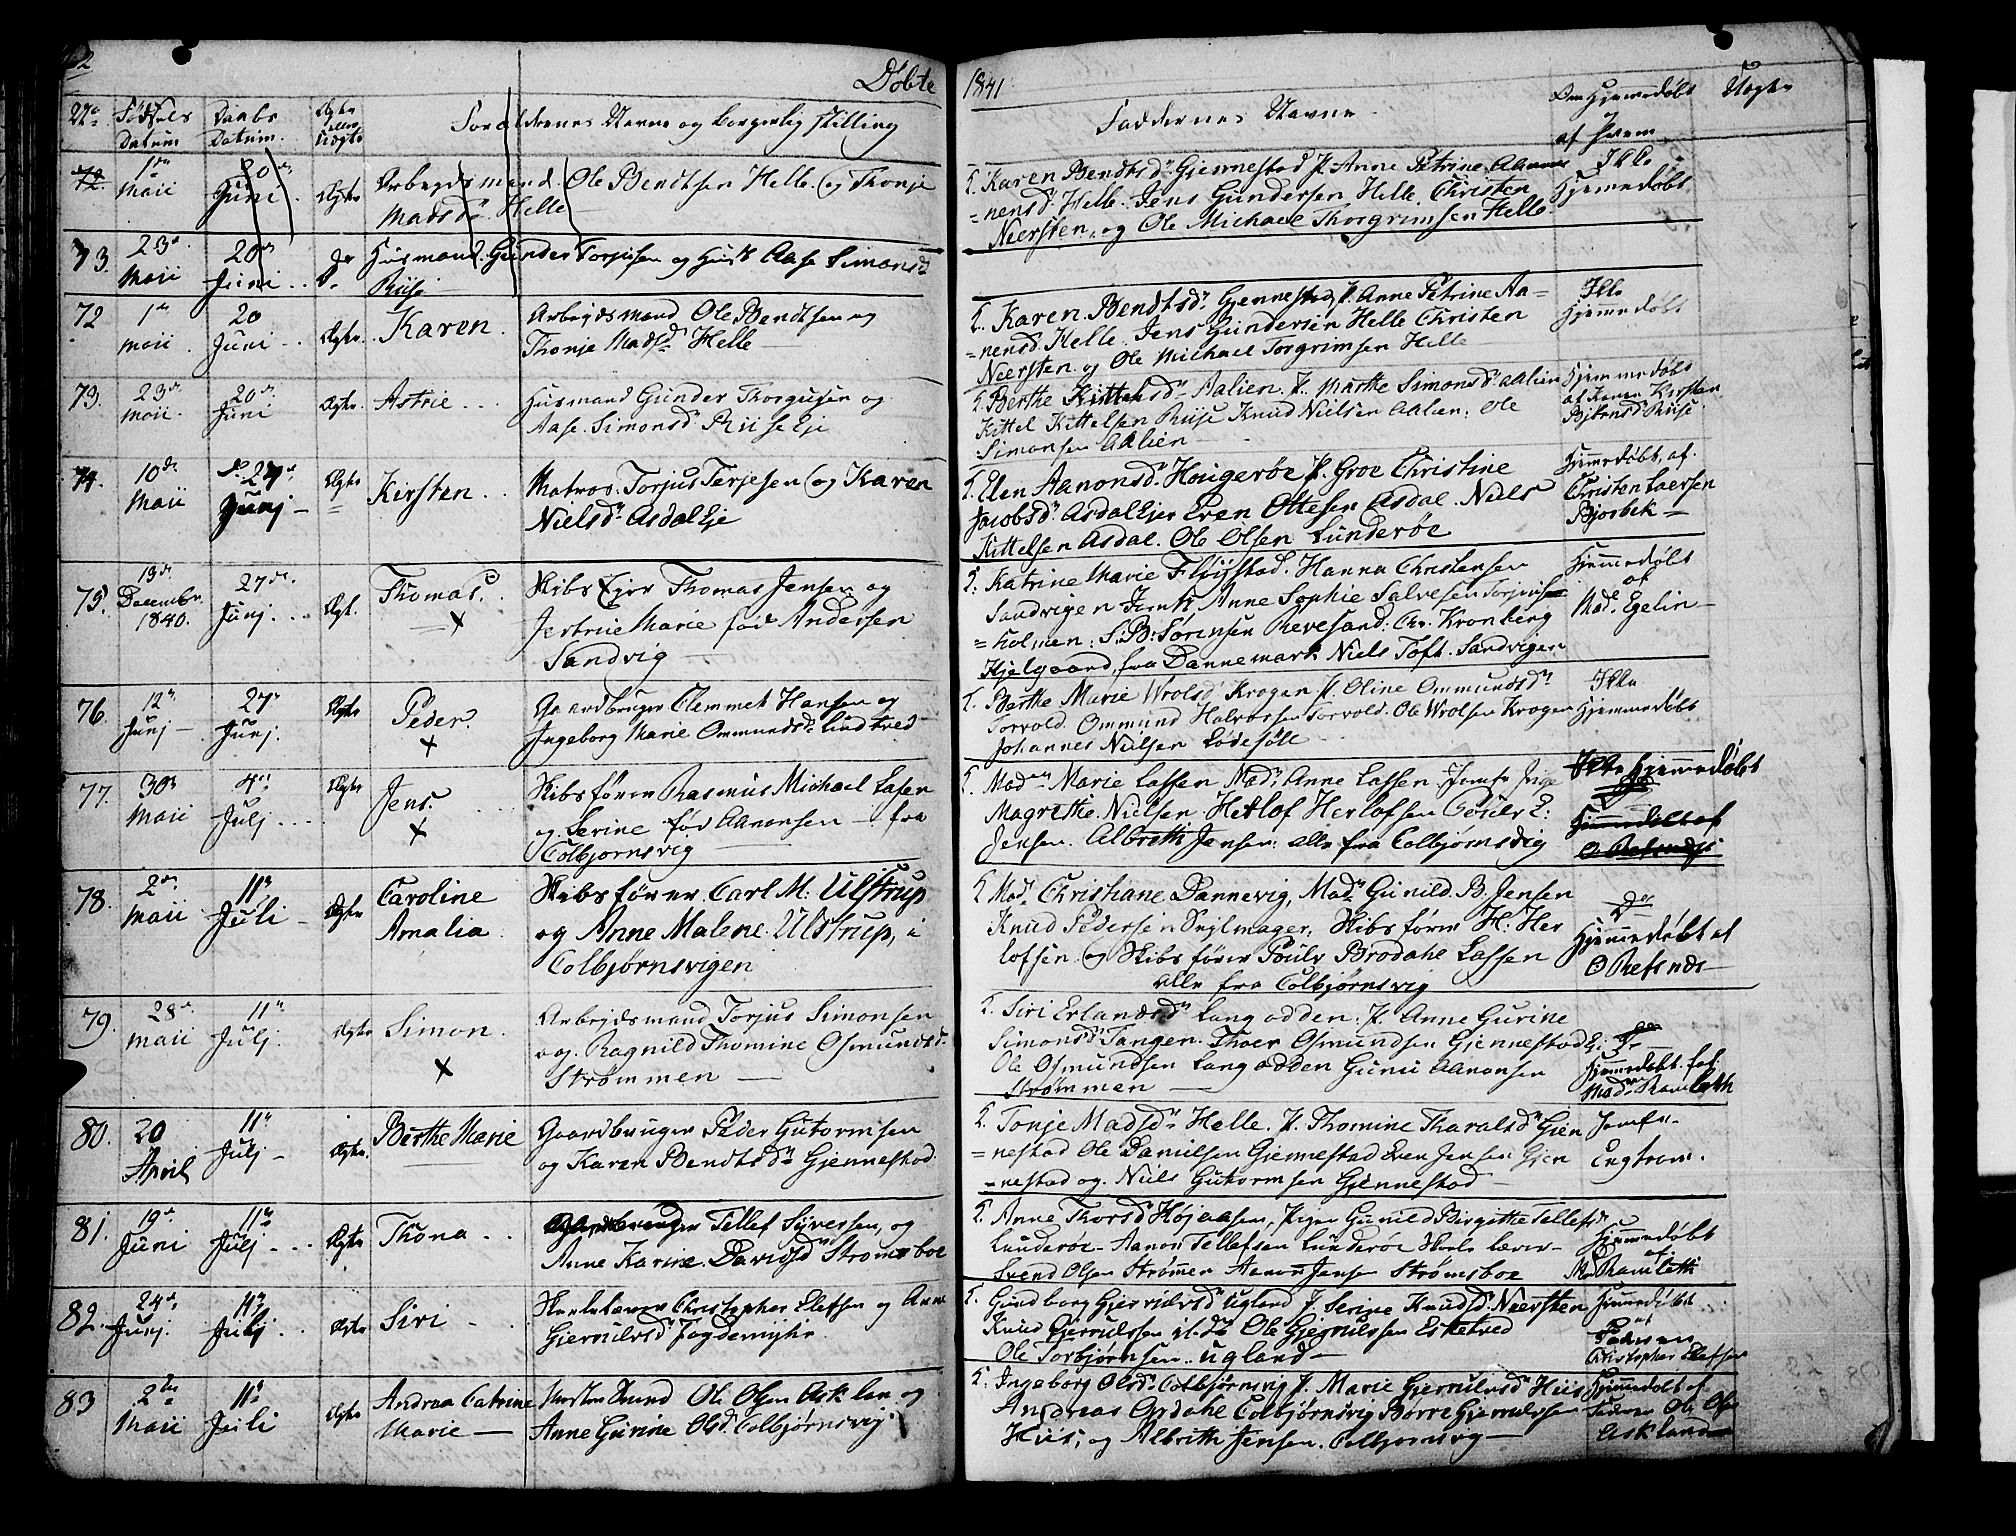 Døbte
1841
No Fødsels Datum
Daabs Datum.
Ægte eller Uægte
Forældrenes Navne og borgerlig stilling
Faddernes Navne
Om Hjemmedøbt
af hvem
72. 1de Maii 20de Juni Ægte Arbeydsmand Ole Bendtsen Helle og Thonje
Madsd. Helle
T. Karen Bendtsd. Gjennestad P. Anne Petrine Aa
nensd. Helle. Jens Gundersen Helle. Christen
Neersten, og Ole Michael Thorgrimsen Helle
Ikke
Hjemmedøbt
73. 23de Maii 20de Juni Husmand Gunder Torjusen og Hust. Aase Simonsd.
Riise
72 1de Maii 20 Juni Ægte Karen. Arbeydsmand Ole Bendtsen og
Thonje Madsd. Helle
T. Karen Bendtsd. Gjennestad, P. Anne Petrine Aa=
=nensd. Helle. Jens Gundersen Helle Christen
Neersten og Ole Michael Torgrimsen Helle
Ikke
hjemmedøbt
73. 23de Maii 20de Juni Ægte Astrie Husmand Gunder Thorgusen og
Aase Simonsd. Riise Eje
T. Berthe Kittelsd. Aalien. P. Marthe Simonsd. Aalien
Kittel Kittelsen Riise Knud Nielsen Aalien. Ole
Simonsen Aalien
Hjemmedøbt
af Karen Kirsten
Bjørnsd. Riise
74. 10de Maii 27de Junj Ægte Kirsten Matros Torjus Terjesen og Karen
Nielsd. Asdal Eje
T. Elen Aanonsd. Hougerøe P. Groe Christine
Jacobsd. Asdal Ejer Even Ottesen Asdal. Niels
Kittelsen Asdal. Ole Olsen Lunderøe
Hjemmedøbt af
Christen Laersen
Bjorbek
75. 13de December 1840. 27de Junj Ægt. Thomas. Skibs Ejer Thomas Jensen og
Marie født Andersen
Sandvig
T. Katrine Marie Fløystad. Hanna Christensen
Sandvigen Jomf. Anne Sophie Salvesen
=holmen. S. B. Sørensen Revesand. Chr. Kronberg
Hjelgaard, fra Dannemark Niels Toft. Sandvigen
Hjemmedøbt
af
Mad. Egelin
76. 12te Junj 27de Junj. Ægte Peder. Gaardbruger Clemmet Hansen og
Ingeborg Marie Ommundsd. Lindtved
T. Berthe Marie Wrolsd. Krogen P. Oline Ommundsd.
Torvold. Ommund Halvorsen Torvold. Ole Wrolsen Krogen
Johannes Nielsen Lødesøll
Ikke
Hjemmedøbt
77. 30te Maii 4de Julj Ægte Jens. Skibsfører Rasmus Michael Lasen
og Serine født Aanonsen fra
Colbjornsvig
T. Mad. Marie Lassen Mad. Anne Lassen Jomfr. Inge
Magrethe Nielsen. Herlof Herlofsen
Jensen. Albreth Jensen. alle fra Colbjørnsvig
Ikke hjemmedøbt
78. 2de Maii 11te Juli Ægte Caroline
Amalia Skibsfører Carl M. Ulstrup
og Anne Malene Ulstrup, i
Colbjørnsvigen
T. Mad. Christiane Dannevig, Mad. Gunild B. Jensen
Knud Pedersen Seylmager, Skibsfører H. Her
lofsen og Skibsfører Brodahe Lassen
alle fra Colbjørnsvig
Hjemmedøbt af
O. Refsnæs
79. 28de Maii 11te Julj Ægte Simon. Arbejdsmand Torjus Simonsen
og Ragnild Thomine Osmundsd.
Strømmen
T. Siri Erlandsd. Langodden. P. Anne Gurine
Simonsd. Tangen. Thoer Osmundsen Gjennestad
Ole Osmundsen Langodden Gunu Aanonsen
Strømmen
Hjemmedøbt af
Mad. Ramleth
80. 20 April 11te Julj Ægte. Berthe Marie Gaardbruger Peder Gutormsen
og Karen Bendtsd. Gjennestad
T. Tonje Madsd. Helle. P. Thomine Tharalsd. Gjen
=nestad Ole Danielsen Gjennestad Even Jensen Gjen
=nestad og Niels Gutormsen Gjennestad
Jomfr.
Engstrøm.
81. 19de Juni 11te Julj Ægte Thona Tellef Syversen, og
Anne Karine Davidsd. Strømsboe
T. Anne Thorsd. Højaasen, Pigen Gunild Birgithe Tellefsd.
Lunderøe Aanon Tellefsen Lunderøe Skolelærer
Svend Olsen Strømmen Aanon Jensen Strømsboe
Hjemmedøbt
af
Ramleth
82. 24de Junj 11te Julj Ægte Siri Skolelærer Christopher Elefsen og Anne
Gjerulvsd. Fogdemyhr
T. Gundborg Gjerulvsd. Ugland P. Serine Knudsd. Neersten
Knud Gjerulfsen Ole Gjerulfsen Esketved
Ole Torbjørnsen Ugland
Hjemmedøbt
af
Faderen
Christopher Elefsen
83 2den Maii 11te Juli Ægte Andrea Catrine
Marie Ole Olsen Askland og
Anne Gurine Olsd. Colbjørnsvig
T. Ingeborg Olsd. Colbjørnsvig P. Marie Gjerulvsd. Hiis
Andreas Opdahl Colbjørnsvig Børre Gjerulfsen
Hiis, og Albreth Jensen. Colbjornsvig
Hjemmedøbt af
Fader Ole Olsen
Askland